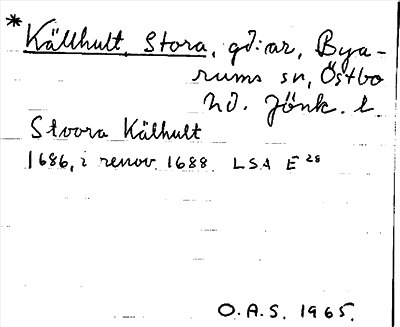 * Källhult, Stora, gd:ar, Bya-
rums sn, Östbo
hd. Jönk. l.
Stoora Kälhult
1686, i renov. 1688. LSA E 28
O.A.S. 1965.